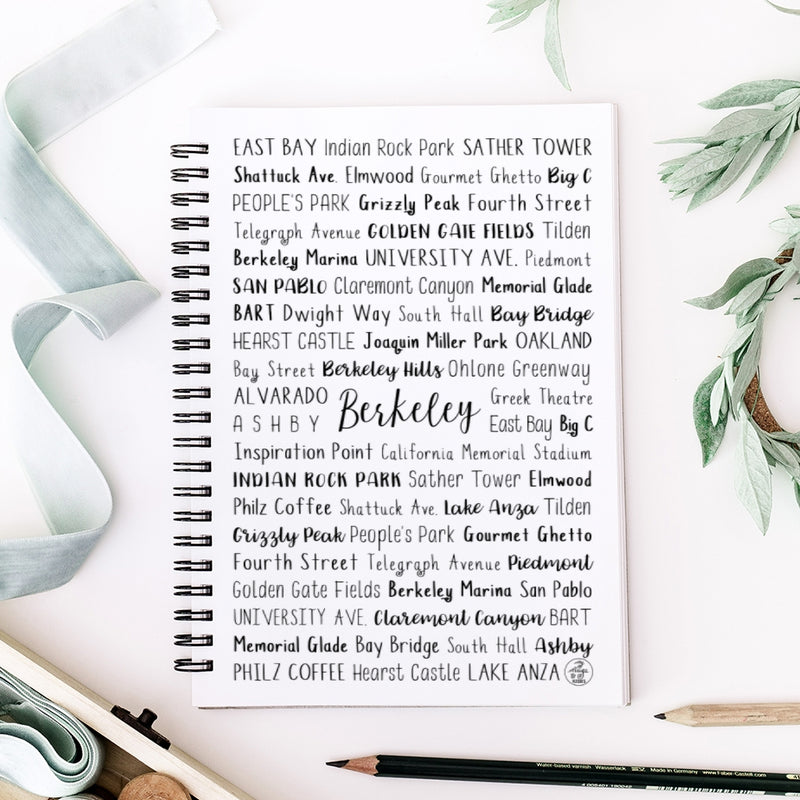 EAST BAY Indian Rock Park SATHER TOWER
Shattuck Ave. Elmwood Gourmet Ghetto Big C
PEOPLE'S PARK Grizzly Peak Fourth Street
Telegraph Avenue GOLDEN GATE FIELDS Tilden
Berkeley Marina UNIVERSITY AVE. Piedmont
SAN PABLO Claremont Canyon Memorial Glade
BART Dwight Way South Hall Bay Bridge
HEARST CASTLE Joaquin Miller Park OAKLAND
Bay Street Berkeley Hills Ohlone Greenway
ALVARADO Greek Theatre
ASHBY Berkeley East Bay Big C
Inspiration Point California Memorial Stadium
INDIAN ROCK PARK Sather Tower Elmwood
Philz Coffee Shattuck Ave. Lake Anza Tilden
Grizzly Peak People's Park Gourmet Ghetto
Fourth Street Telegraph Avenue Piedmont
Golden Gate Fields Berkeley Marina San Pablo
UNIVERSITY AVE. Claremont Canyon BART
Memorial Glade Bay Bridge South Hall Ashby
PHILZ COFFEE Hearst Castle LAKE ANZA
Water-based varnish Wasserlack Made in Germany www.Faber-Castell.com